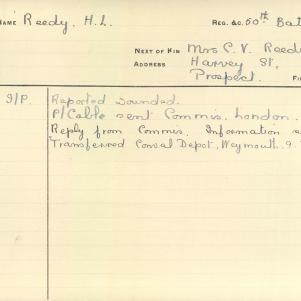 NAME Reedy, H.L. REG. &C. 50th Bat
NEXT OF KIN Mrs C. V. Reed
ADDRESS Harvey St,
Prospect.
9/P. Reported wounded.
P/Cable sent Commis. London.
Reply from Commis. Information
Transferred Conval Depot, Weymouth, 9.